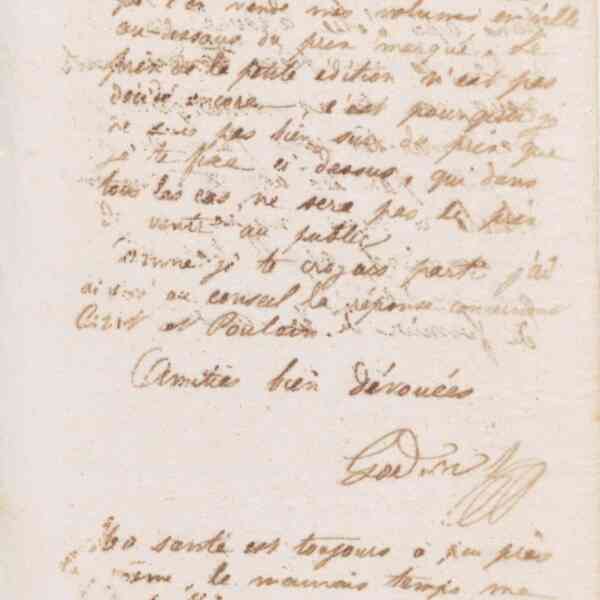 vends mes volumes en ville
au-dessous du prix marqué. Le
prix de la petite édition n'est pas
décidé encore, c'est pourquoi je
ne suis pas bien sûr du prix que
je te fixe ci-dessus, qui dans
tous les cas, ne sera pas le prix
vente au public
Comme je te croyais parti j'ai
au conseil la réponse concernant
et Poulain.
Amitiés bien dévouées
Godin
santé est toujours à peu près
même, le mauvais temps me